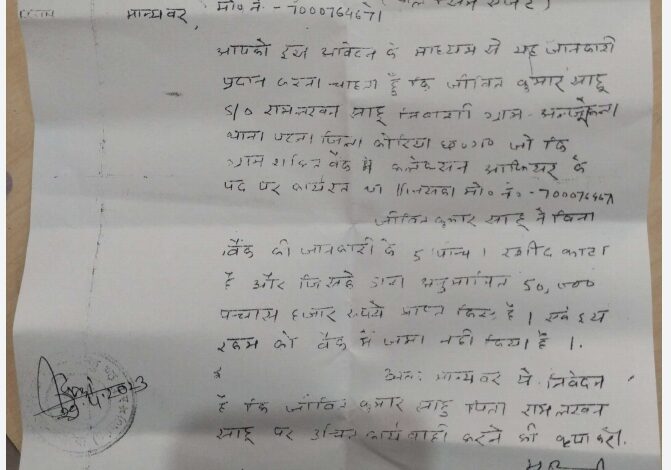 मान्यवर, मो० नं० -7000764671
आपको इस आवेदन के माध्यम से यह जानकारी
प्रदान करना चाहता हूँ कि जीवित कुमार साहू
S/O रामलखन साहू निवासी ग्राम-
थाना पटना जिला कोरिया छ०ग० जो कि
ग्राम शक्ति बैंक में कलेक्सन आफिसर के
पद पर कार्यरत था जिसका मो० नं० -700076467
जीवित कुमार साहू ने बिना
बैंक की जानकारी के 5 पांच । रसीद काटा
है और जिसके द्वारा अनुमानित 50,000
पच्चास हजार रुपये प्राप्त किए है । एवं इस
रकम को बैंक में जमा नही दिया है ।
अतः मान्यवर से निवेदन
है कि जीवित कुमार साहू पिता रामलखन
साहू पर उचित कार्यवाही करने की कृपा करें।